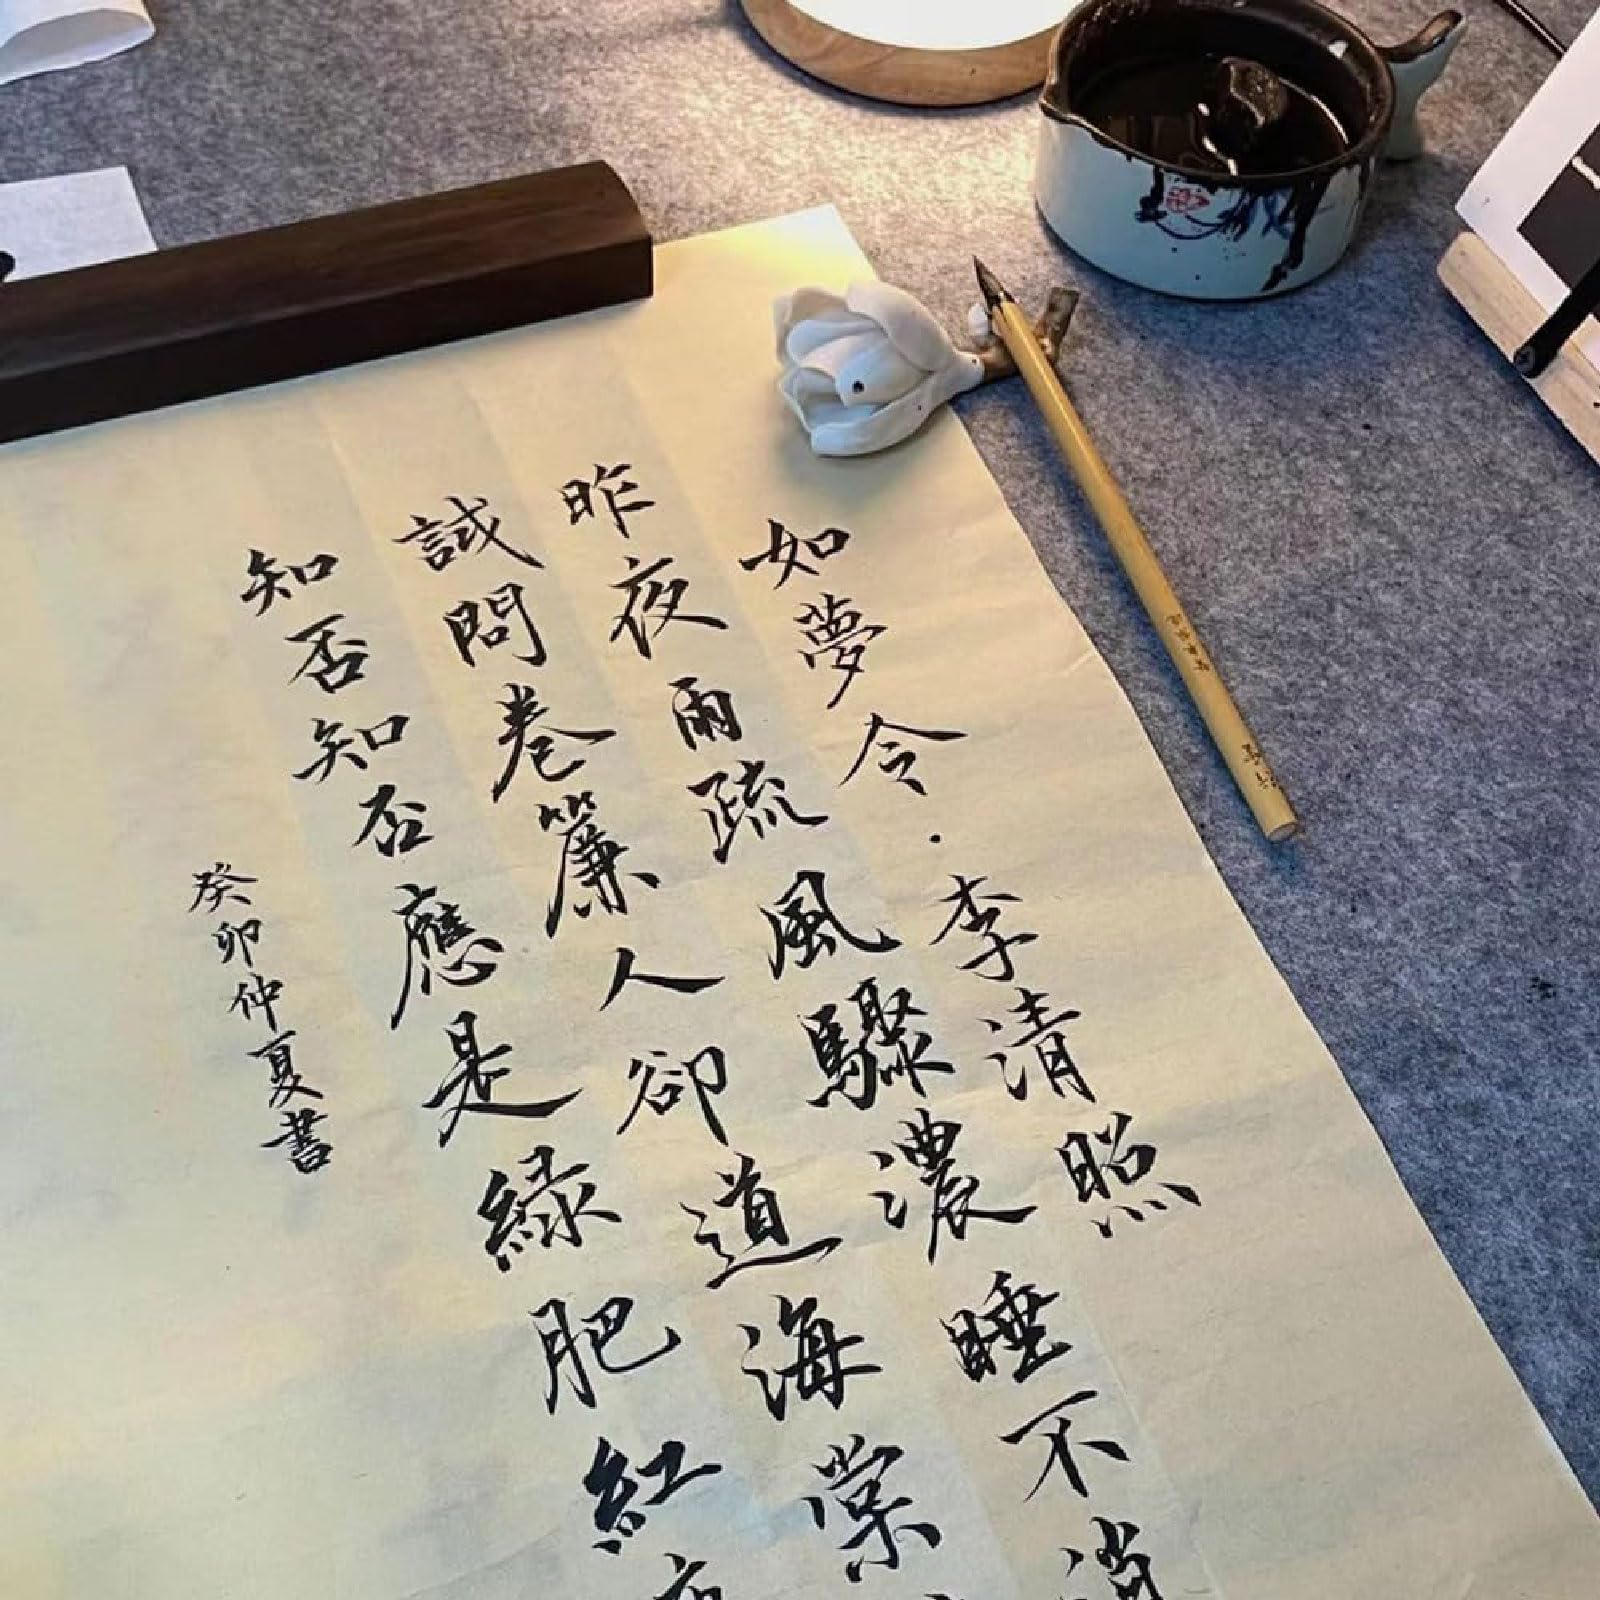 如夢令·李清照
昨夜雨疏風驟濃睡不消
試問卷簾人卻道海棠
知否知否應是綠肥紅
癸卯仲夏書